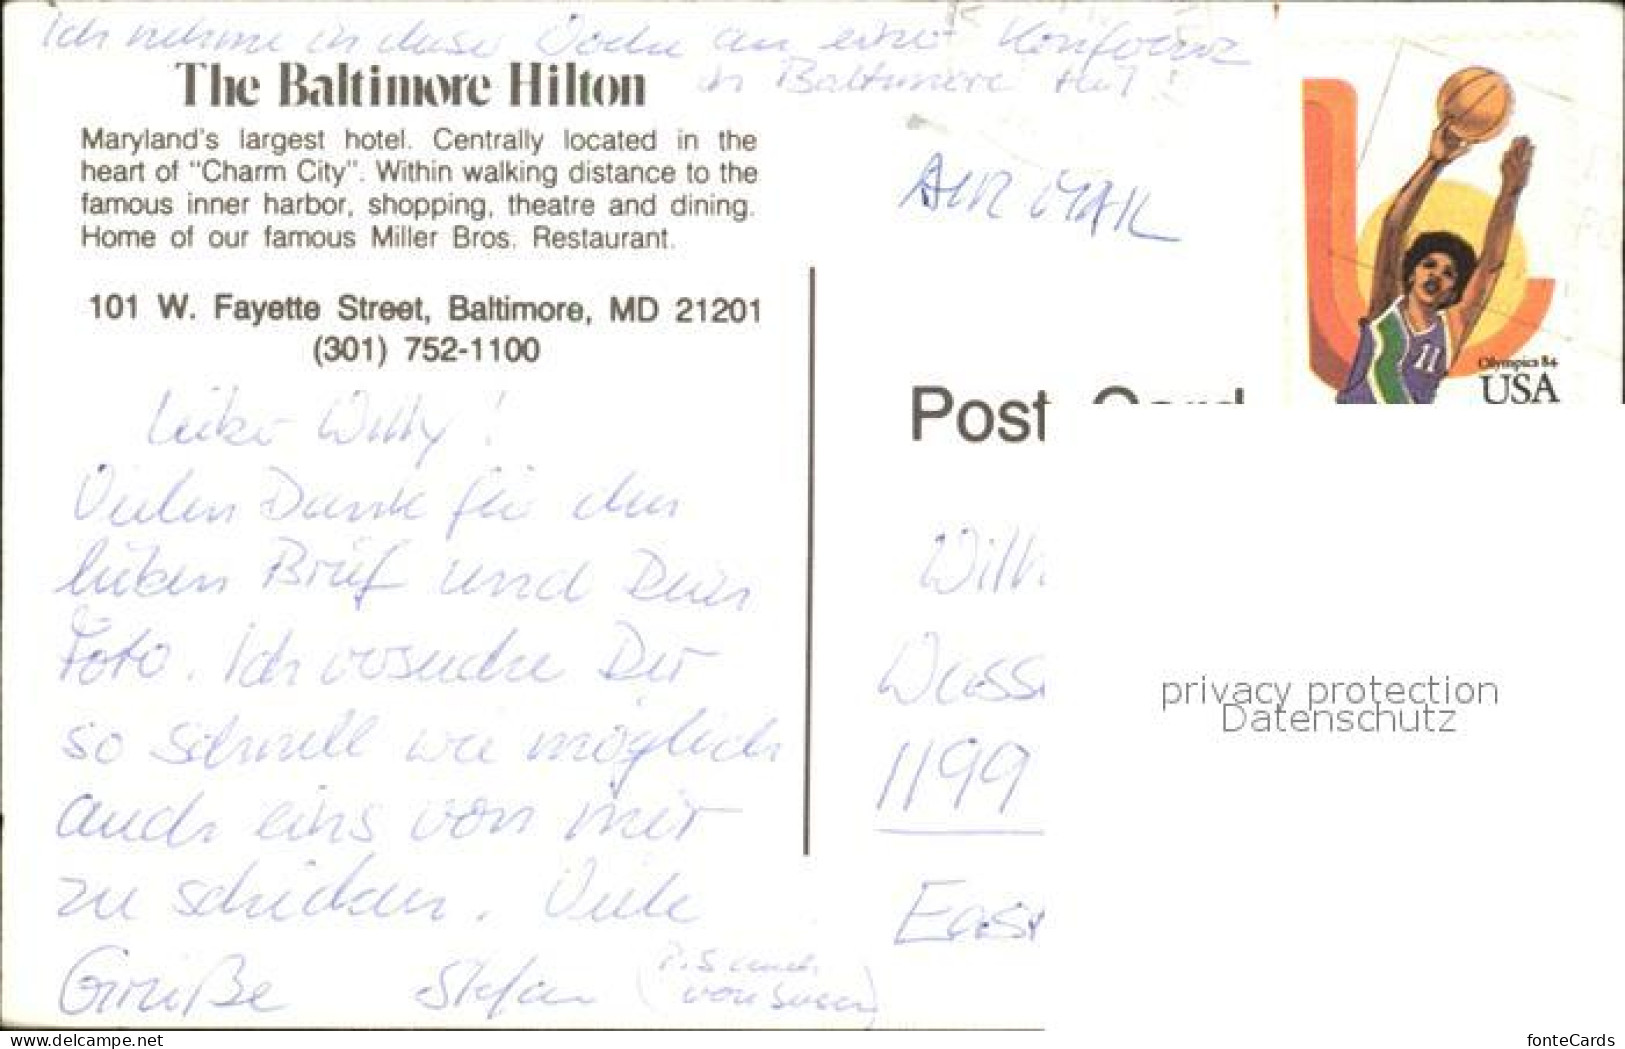 Ich nehme in dieser Woche an einer Konferenz
in Baltimore teil!
The Baltimore Hilton
Maryland's largest hotel. Centrally located in the
heart of "Charm City". Within walking distance to the
famous inner harbor, shopping, theatre and dining.
Home of our famous Miller Bros. Restaurant.
101 W. Fayette Street, Baltimore, MD 21201
(301) 752-1100
AIR MAIL
11
Olympics 84
USA
Post Card
Lieber Willy!
Vielen Dank für den
lieben Brief und Dein
Foto. Ich versuche Dir
so schnell wie möglich
auch eins von mir
zu schicken. Viele
Grüße Stefan (P.S auch
von Susan)
Wilh
Wass
1199
East
privacy protection
Datenschutz
delcampe.net
fonteCards